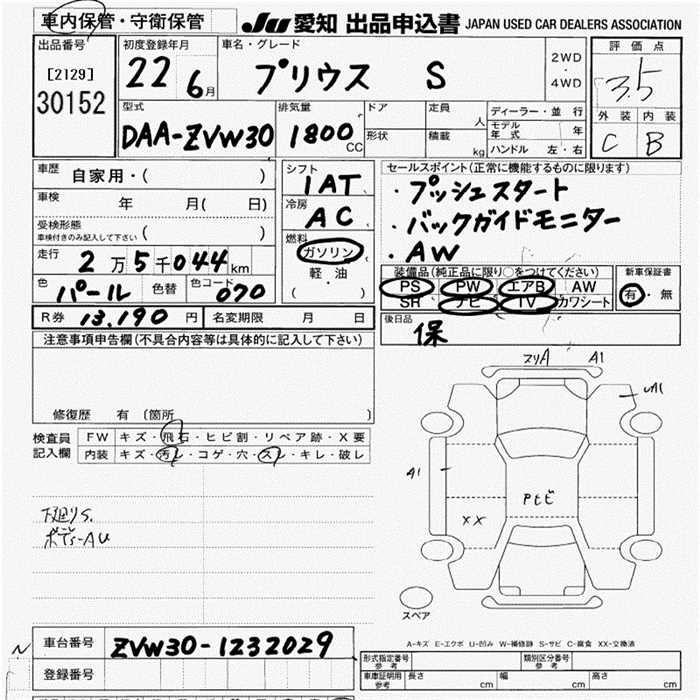 車内保管・守衛保管
JU 愛知 出品申込書 JAPAN USED CAR DEALERS ASSOCIATION
出品番号
[2129]
30152
初度登録年月
22 6月
車名・グレード
プリウス S
2WD
・
4WD
評価点
3.5
外装 内装
C B
型式
DAA-ZVW30
排気量
1800 CC
ドア
形状
定員 人
積載 kg
ディーラー・並行
モデル年式 年
ハンドル 左・右
車歴
自家用・( )
車検 年 月( 日)
受検形態
車検付きのみ記入して下さい ( )
走行
2万5千044km
色 パール 色替 色コード 070
シフト
1AT
冷房
AC
燃料
ガソリン
軽・油
( )
セールスポイント(正常に機能するものに限ります)
・プッシュスタート
・バックガイドモニター
・AW
装備品(純正品に限り○をつけてください)
PS PW エアB AW
SR ナビ TV カワシート
新車保証書
有・無
R券 13,190円 名変期限 月 日
後日品
保
注意事項申告欄(不具合内容等は具体的に記入して下さい)
修復歴 有 (箇所 )
検査員
記入欄
FW キズ・飛石・ヒビ割・リペア跡・X要
内装 キズ・汚レ・コゲ・穴・スレ・キレ・破レ
下廻りS.
マリA A1
A1
A1
Pヒビ
XX
スペア
A-キズ E-エクボ U-凹み W-補修跡 S-サビ C-腐食 XX-交換済
車台番号 ZVW30-1232029
登録番号
形式指定番号
参考
類別区分番号
参考
車庫証明用
参考
長さ cm 幅 cm 高さ cm